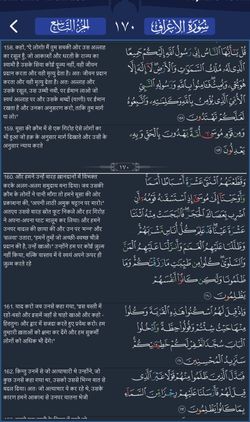 الجزء التاسع
١٧٠
سورة الأعراف
158. कहो, "ऐ लोगो! मैं तुम सबकी ओर उस अल्लाह
का रसूल हूँ, जो आकाशों और धरती के राज्य का
स्वामी है उसके सिवा कोई पूज्य नहीं, वही जीवन
प्रदान करता और वही मृत्यु देता है। अतः जीवन प्रदान
करता और वही मृत्यु देता है। अतः अल्लाह और
उसके रसूल, उस उम्मी नबी, पर ईमान लाओ जो
स्वयं अल्लाह पर और उसके शब्दों (वाणी) पर ईमान
रखता है और उनका अनुसरण करो, ताकि तुम मार्ग
पा लो।"
قُلْ يَٰٓأَيُّهَا ٱلنَّاسُ إِنِّى رَسُولُ ٱللَّهِ إِلَيْكُمْ جَمِيعًا
ٱلَّذِى لَهُۥ مُلْكُ ٱلسَّمَٰوَٰتِ وَٱلْأَرْضِ لَآ إِلَٰهَ إِلَّا
هُوَ يُحْىِۦ وَيُمِيتُ فَـَٔامِنُوا۟ بِٱللَّهِ وَرَسُولِهِ ٱلنَّبِىِّ
ٱلْأُمِّىِّ ٱلَّذِى يُؤْمِنُ بِٱللَّهِ وَكَلِمَٰتِهِۦ وَٱتَّبِعُوهُ
لَعَلَّكُمْ تَهْتَدُونَ ١٥٨
159. मूसा की क़ौम में से एक गिरोह ऐसे लोगों का
भी हुआ जो हक़ के अनुसार मार्ग दिखाते और उसी के
अनुसार न्याय करते
وَمِن قَوْمِ مُوسَىٰٓ أُمَّةٌ يَهْدُونَ بِٱلْحَقِّ وَبِهِۦ
يَعْدِلُونَ ١٥٩
١٧٠
160. और हमने उन्हें बारह ख़ानदानों में विभक्त
करके अलग-अलग समुदाय बना दिया। जब उसकी
क़ौम के लोगों ने पानी माँगा तो हमने मूसा की ओर
प्रकाशना की, "अपनी लाठी अमुक चट्टान पर मारो।"
अतएव उससे बारह स्रोत फूट निकले और हर गिरोह
ने अपना-अपना घाट मालूम कर लिया। और हमने
उनपर बादल की छाया की और उन पर 'मन्न' और
'सलवा' उतारा, "हमने तुम्हें जो अच्छी-स्वच्छ चीज़ें
प्रदान की है, उन्हें खाओ।" उन्होंने हम पर कोई ज़ुल्म
नहीं किया, बल्कि वास्तव में वे स्वयं अपने ऊपर ही
ज़ुल्म करते रहे
وَقَطَّعْنَٰهُمُ ٱثْنَتَىْ عَشْرَةَ أَسْبَاطًا أُمَمًا
وَأَوْحَيْنَآ إِلَىٰ مُوسَىٰٓ إِذِ ٱسْتَسْقَىٰهُ قَوْمُهُۥٓ أَنِ
ٱضْرِب بِّعَصَاكَ ٱلْحَجَرَ فَٱنۢبَجَسَتْ مِنْهُ ٱثْنَتَا
عَشْرَةَ عَيْنًا قَدْ عَلِمَ كُلُّ أُنَاسٍ مَّشْرَبَهُمْ
وَظَلَّلْنَا عَلَيْهِمُ ٱلْغَمَٰمَ وَأَنزَلْنَا عَلَيْهِمُ ٱلْمَنَّ
وَٱلسَّلْوَىٰ كُلُوا۟ مِن طَيِّبَٰتِ مَا رَزَقْنَٰكُمْ وَمَا
ظَلَمُونَا وَلَٰكِن كَانُوٓا۟ أَنفُسَهُمْ
يَظْلِمُونَ ١٦٠
161. याद करो जब उनसे कहा गया, "इस बस्ती में
रहो-बसो और इसमें जहाँ से चाहो खाओ और कहो -
हित्ततुन। और द्वार में सजदा करते हुए प्रवेश करो। हम
तुम्हारी ख़ताओं को क्षमा कर देंगे और हम सुकर्मी
लोगों को अधिक भी देंगे।"
وَإِذْ قِيلَ لَهُمُ ٱسْكُنُوا۟ هَٰذِهِ ٱلْقَرْيَةَ وَكُلُوا۟
مِنْهَا حَيْثُ شِئْتُمْ وَقُولُوا۟ حِطَّةٌ وَٱدْخُلُوا۟
ٱلْبَابَ سُجَّدًا نَّغْفِرْ لَكُمْ خَطِيٓـَٰٔتِكُمْ
سَنَزِيدُ ٱلْمُحْسِنِينَ ١٦١
162. किन्तु उनमें से जो अत्याचारी थे उन्होंने, जो
कुछ उनसे कहा गया था, उसको उससे भिन्न बात से
बदल दिया। अतः जो अत्याचार वे कर रहे थे, उसके
कारण हमने आकाश से उनपर यातना भेजी
فَبَدَّلَ ٱلَّذِينَ ظَلَمُوا۟ مِنْهُمْ قَوْلًا غَيْرَ ٱلَّذِى
قِيلَ لَهُمْ فَأَرْسَلْنَا عَلَيْهِمْ رِجْزًا مِّنَ ٱلسَّمَآءِ
بِمَا كَانُوا۟ يَظْلِمُونَ ١٦٢